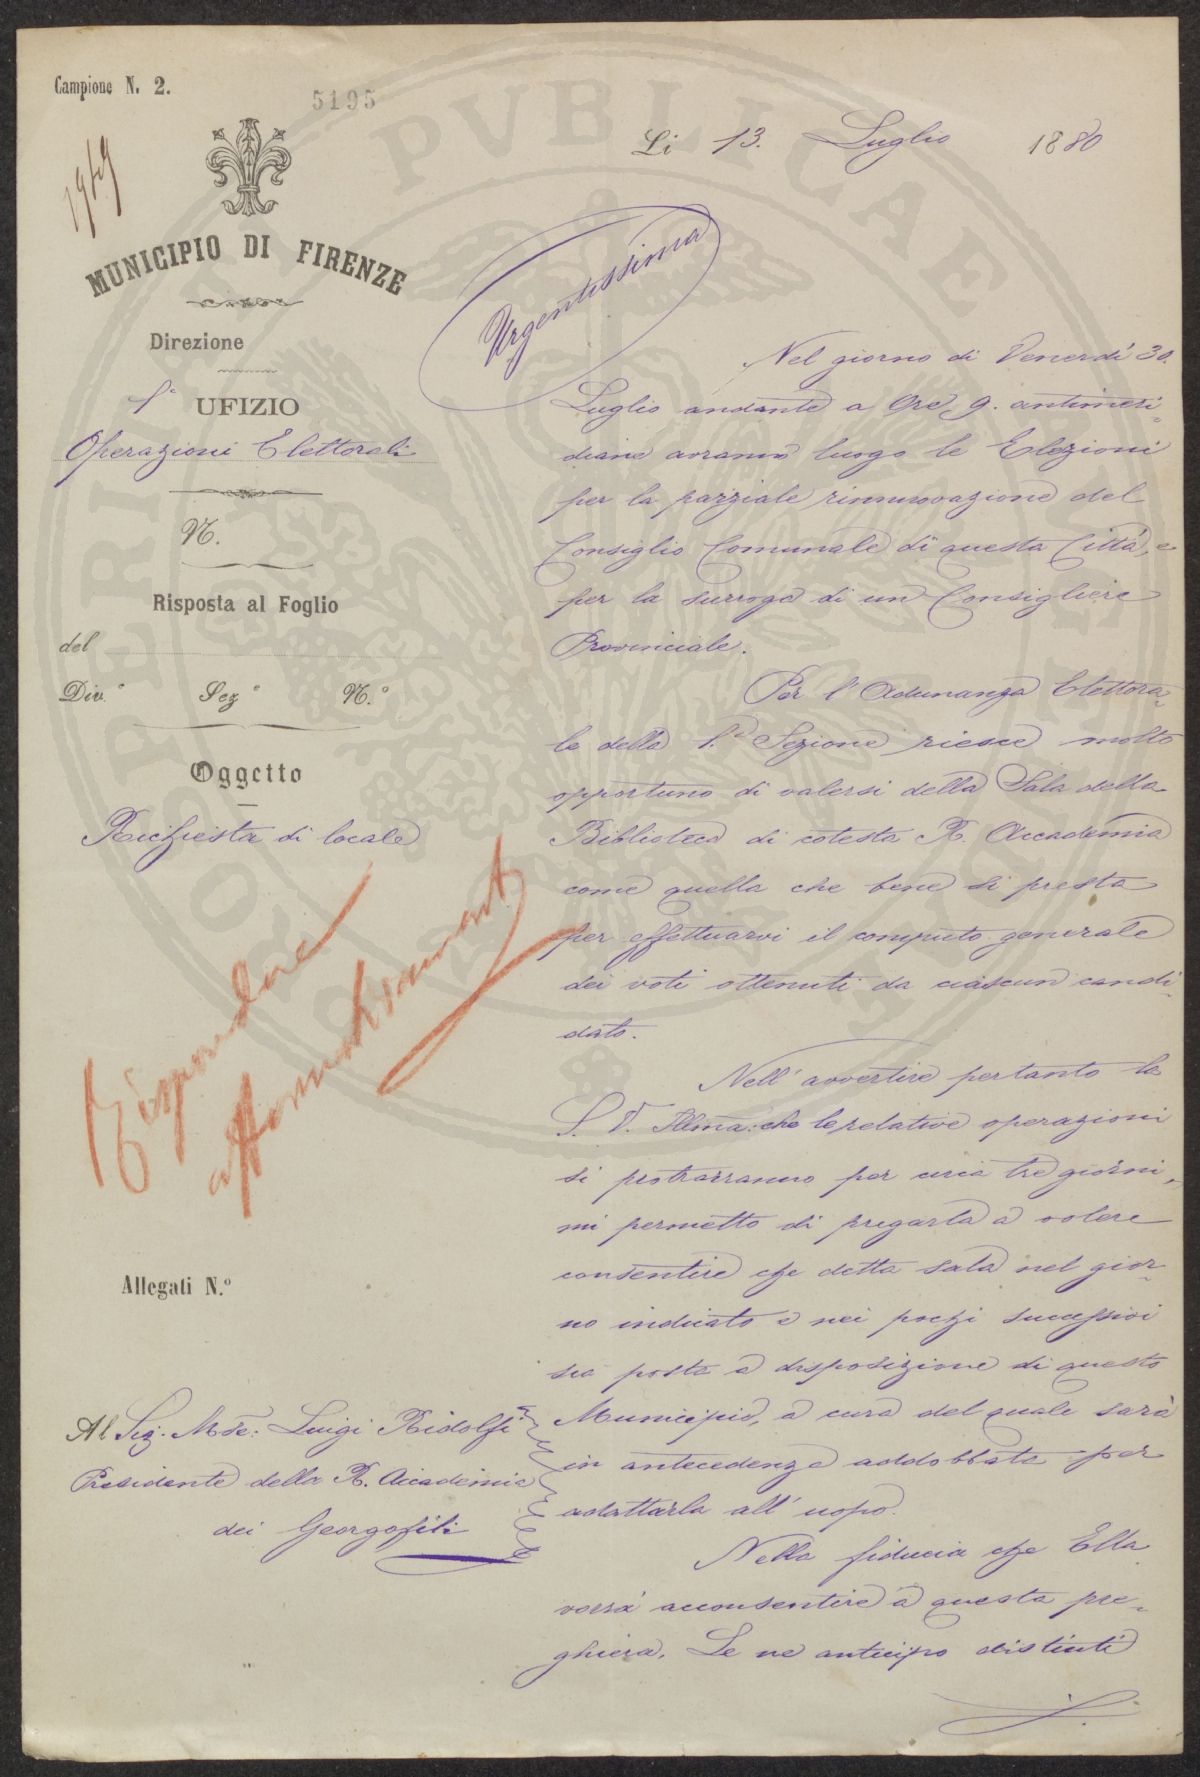 Campione N. 2.
5195
1949
MUNICIPIO DI FIRENZE
Direzione
1° UFIZIO
Operazioni Elettorali
N.
Risposta al Foglio
del
Div.° Sez° N.°
Oggetto
Richiesta di locale
Rispondere
affermativamente
Allegati N.°
Al Sig. Mse: Luigi Ridolfi
Presidente della R. Accademia
dei Georgofili
Li 13. Luglio 1880
Urgentissima
Nel giorno di Venerdì 30.
Luglio andante a Ore 9. antimeri-
diane avranno luogo le Elezioni
per la parziale rinnuovazione del
Consiglio Comunale di questa Città, e
per la surroga di un Consigliere
Provinciale.
Per l'Adunanza Elettora-
le della 1.a Sezione riesce molto
opportuno di valersi della Sala della
Biblioteca di cotesta R. Accademia
come quella che bene si presta
per effettuarvi il computo generale
dei voti ottenuti da ciascun candi-
dato.
Nell'avvertire pertanto la
S. V. Illma: che le relative operazioni
si protrarranno per circa tre giorni,
mi permetto di pregarla a volere
consentire che detta sala nel gior-
no indicato e nei successivi
sia posta a disposizione di questo
Municipio, a cura del quale sarà
in antecedenza addobbata per
adattarla all'uopo.
Nella fiducia che Ella
vorrà acconsentire a questa pre-
ghiera, Le ne anticipo distinti